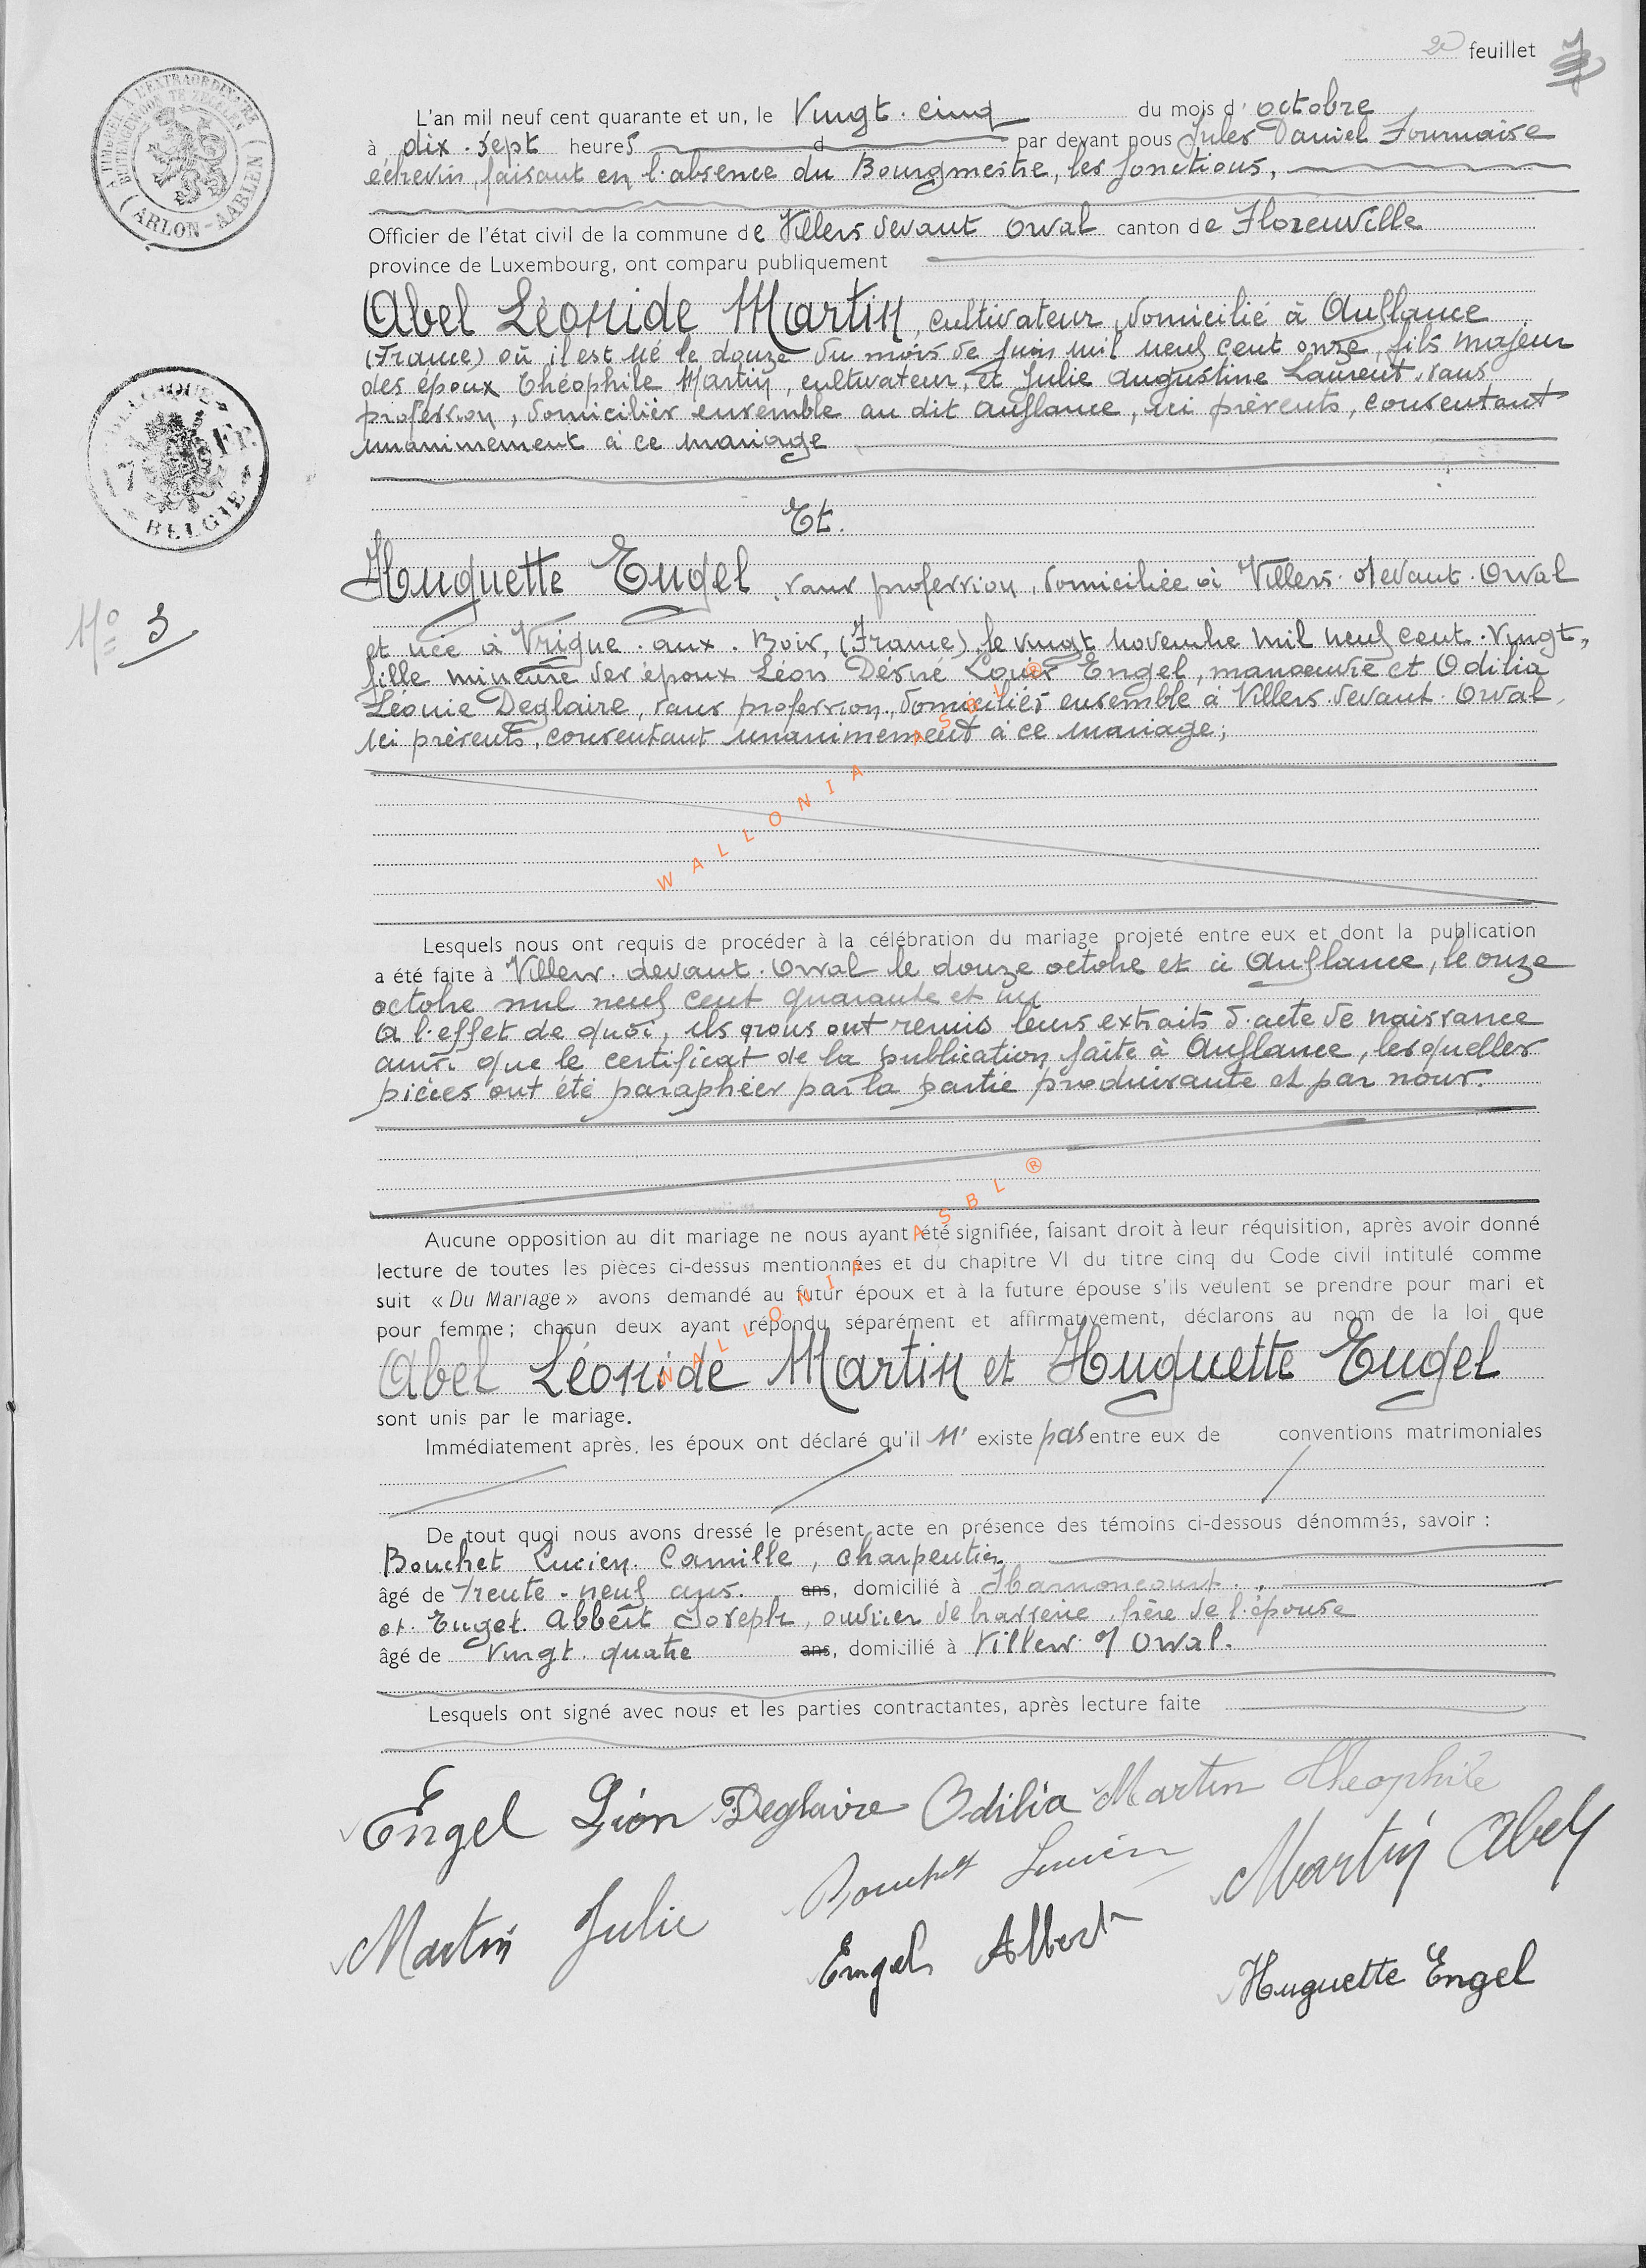 2e feuillet
L'an mil neuf cent quarante et un, le Vingt. cinq du mois d' octobre
à dix. sept heures d par devant nous Jules Daniel Fournaise
échevin, faisant en l'absence du Bourgmestre, les fonctions,
Officier de l'état civil de la commune de Villers devant Orval canton de Florenville
province de Luxembourg, ont comparu publiquement
Abel Léonide Martin, cultivateur, domicilié à Auflance
(France) où il est né le douze du mois de juin mil neuf cent onze, fils majeur
des époux Théophile Martin, cultivateur, et Julie Augustine Laurent, sans
profession, domiciliés ensemble au dit Auflance, ici présents, consentant
unanimement à ce mariage
Et.
Huguette Engel, sans profession, domiciliée à Villers. devant. Orval
et née à Vrigne. aux. Bois, (France), le vingt novembre mil neuf cent. vingt,
fille mineure des époux Léon Désiré Louis Engel, manoeuvre et Odilia
Léonie Deglaire, sans profession, domiciliés ensemble à Villers. devant. Orval,
ici présents, consentant unanimement à ce mariage;
Lesquels nous ont requis de procéder à la célébration du mariage projeté entre eux et dont la publication
a été faite à Villers. devant. Orval le douze octobre et à Auflance, le onze
octobre mil neuf cent quarante et un
A l'effet de quoi, ils nous ont remis leurs extraits d'acte de naissance
ainsi que le certificat de la publication faite à Auflance, lesquelles
pièces ont été paraphées par la partie produisante et par nous.
Aucune opposition au dit mariage ne nous ayant été signifiée, faisant droit à leur réquisition, après avoir donné
lecture de toutes les pièces ci-dessus mentionnées et du chapitre VI du titre cinq du Code civil intitulé comme
suit « Du Mariage » avons demandé au futur époux et à la future épouse s'ils veulent se prendre pour mari et
pour femme; chacun deux ayant répondu séparément et affirmativement, déclarons au nom de la loi que
Abel Léonide Martin et Huguette Engel
sont unis par le mariage.
Immédiatement après, les époux ont déclaré qu'il n' existe pas entre eux de conventions matrimoniales
De tout quoi nous avons dressé le présent acte en présence des témoins ci-dessous dénommés, savoir :
Bouchet Lucien. Camille, charpentier
âgé de Trente. neuf ans. ans, domicilié à Harnoncourt.,
et Engel. Albert Joseph, ouvrier de brasserie, frère de l'épouse
âgé de Vingt. quatre ans, domicilié à Villers d Orval.
Lesquels ont signé avec nous et les parties contractantes, après lecture faite
Engel Léon Deglaire Odilia Martin Théophile
Bouchet Lucien Martin Abel
Martin Julie
Engel Albert
Huguette Engel
N° 3
A TIMBRER A L'EXTRAORDINAIRE
BUITENGEWOON TE ZEGELEN
(ARLON-AARLEN)
BELGIQUE
7 FR
BELGIE
WALLONIA ASBL ®
WALLONIA ASBL ®